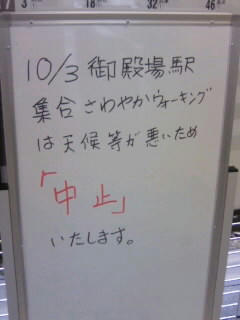 10/3 御殿場駅
集合 さわやかウォーキング
は天候等が悪いため
「中止」
いたします。